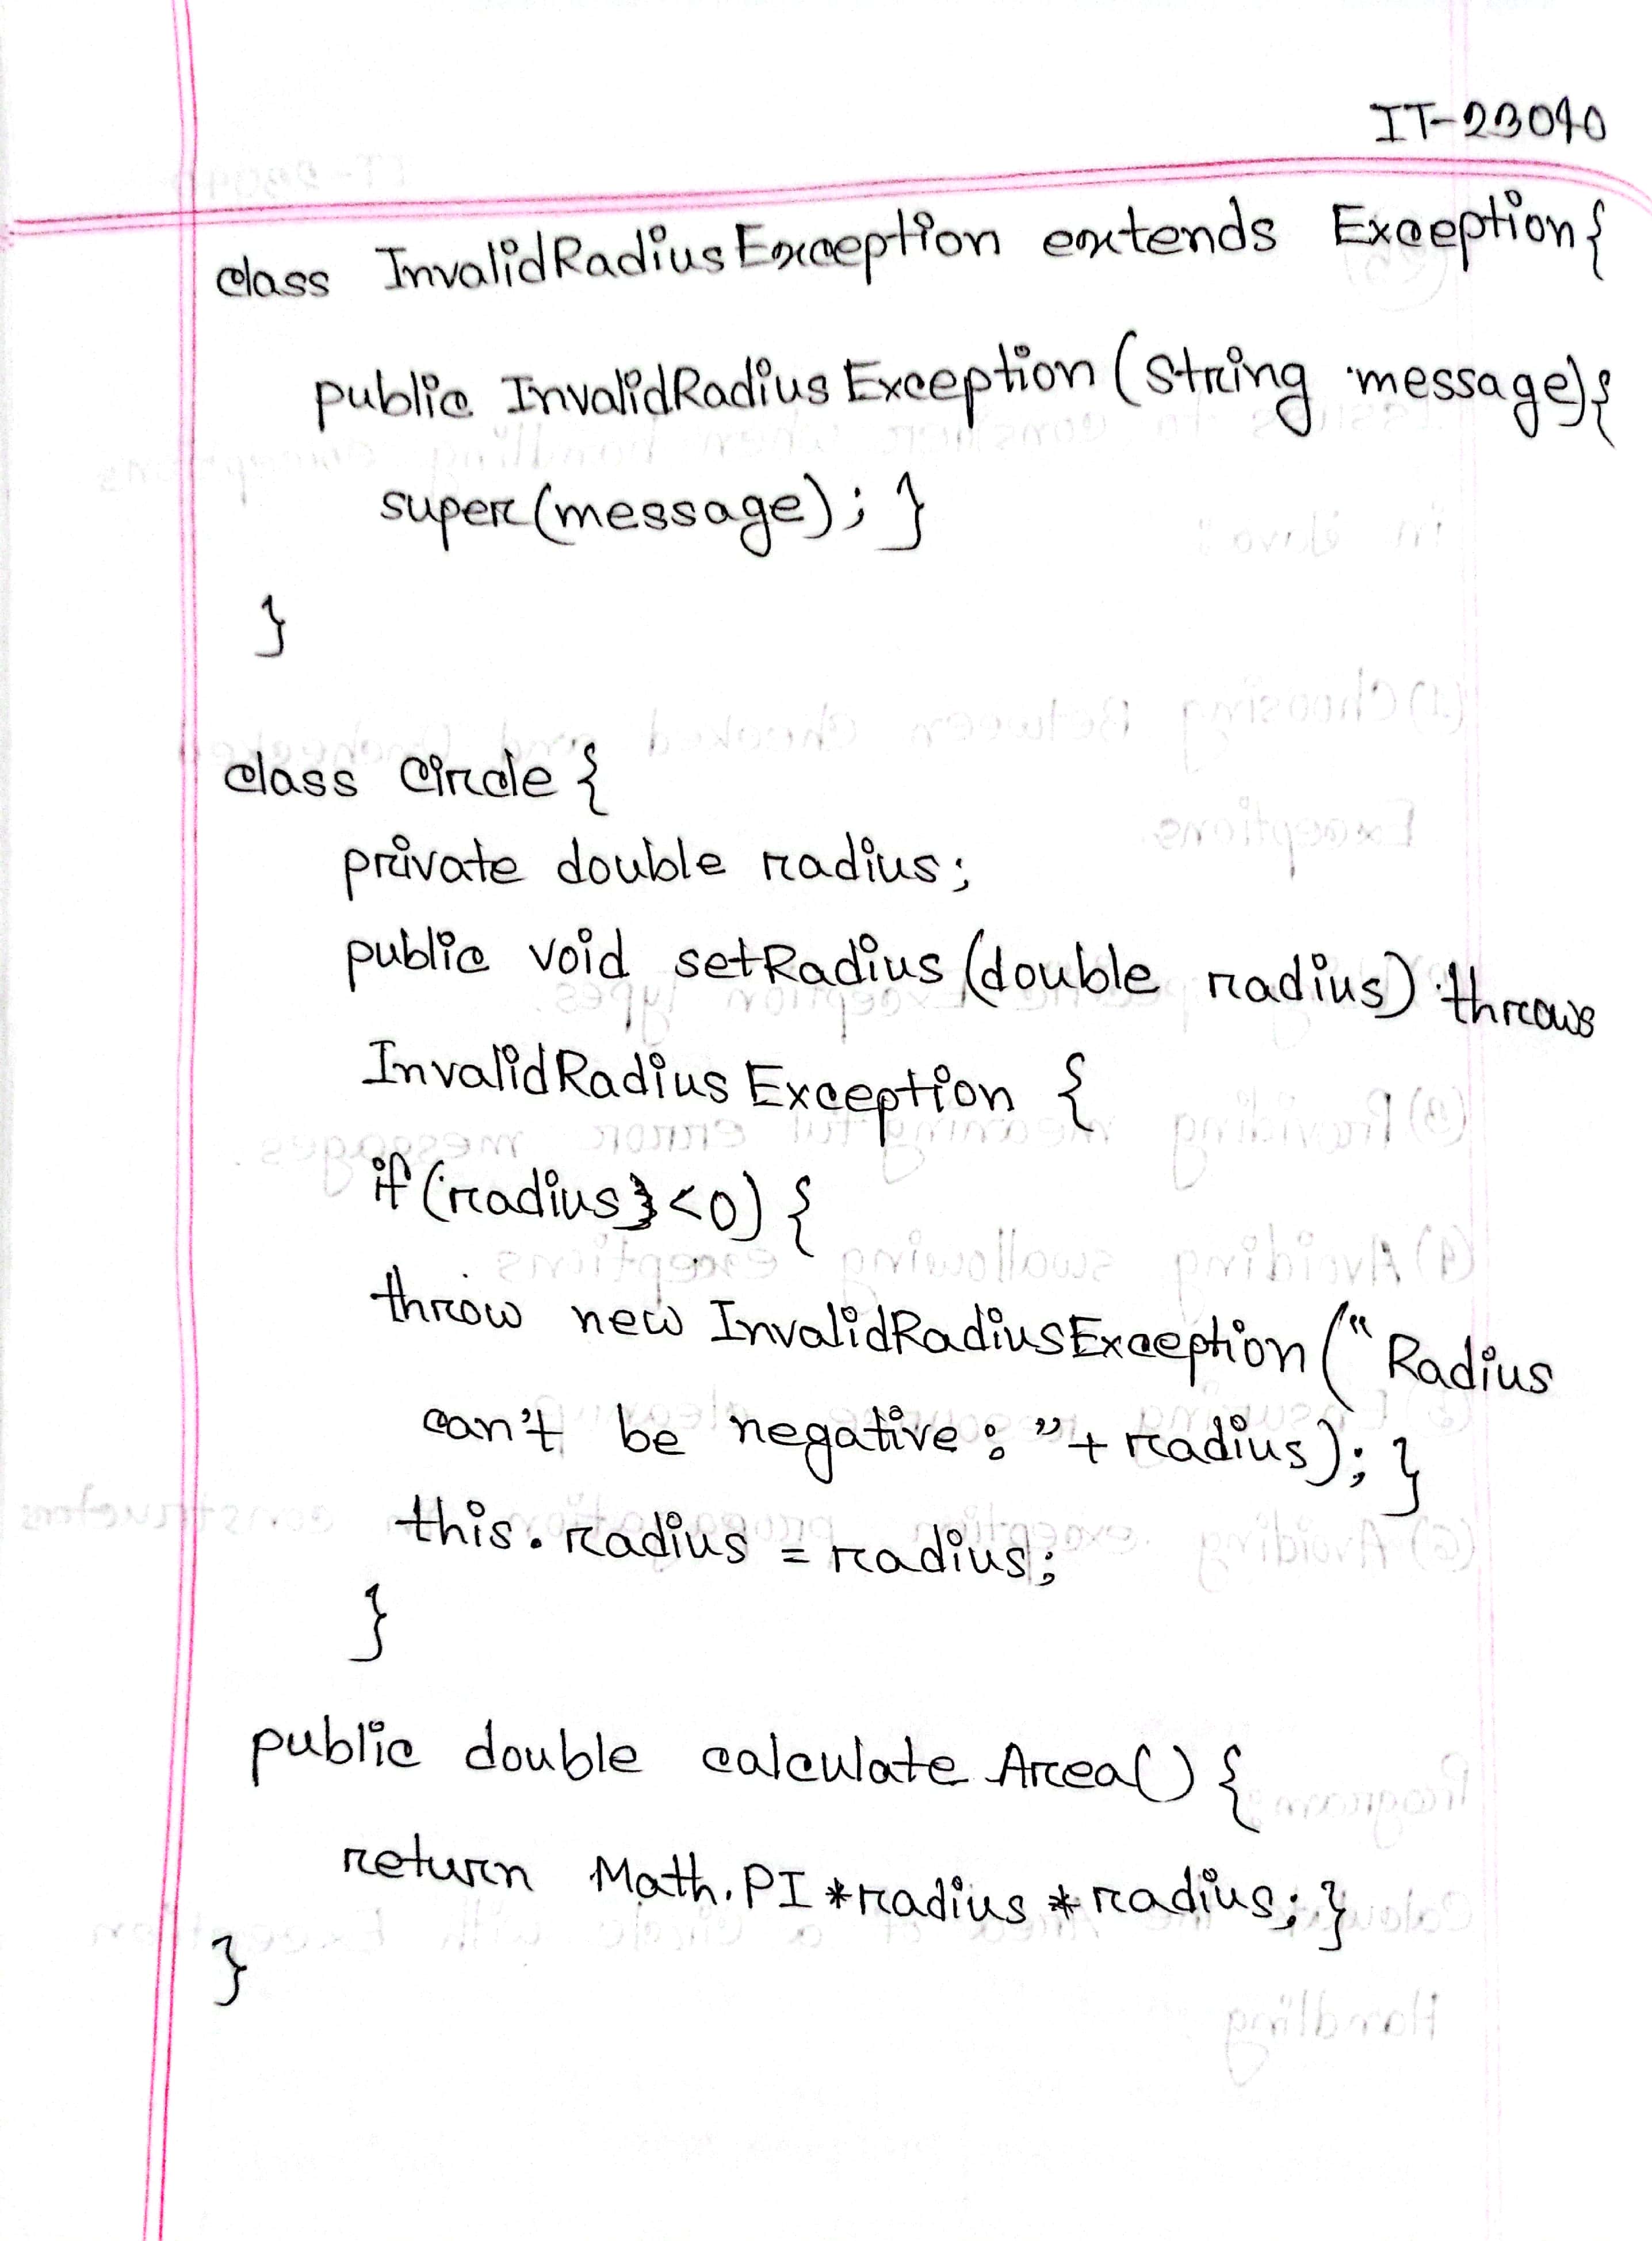 IT-23040
class InvalidRadiusException extends Exception{
public InvalidRadiusException (String message){
super(message); }
}
class Circle {
private double radius;
public void setRadius (double radius) throws
InvalidRadiusException {
if (radius <0) {
throw new InvalidRadiusException ("Radius
can't be negative: "+ radius); }
this.radius = radius;
}
public double calculateArea() {
return Math.PI *radius * radius; }
}